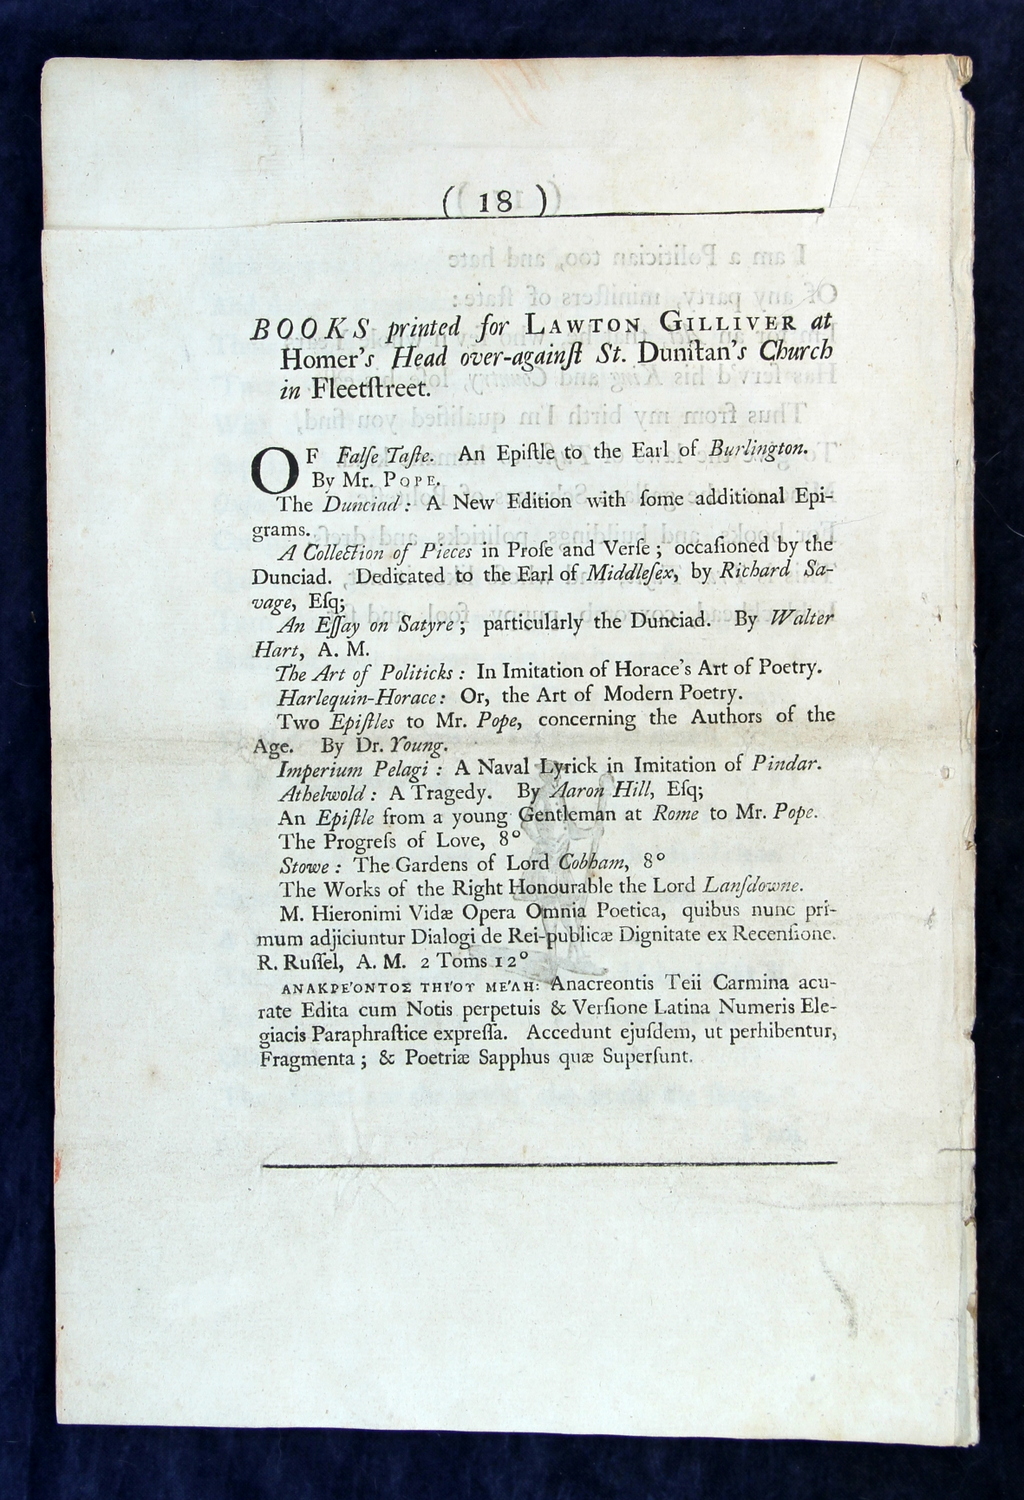 ( 18 )
BOOKS printed for LAWTON GILLIVER at
Homer's Head over-againſt St. Dunſtan's Church
in Fleetſtreet.
OF Falſe Taſte. An Epiſtle to the Earl of Burlington.
By Mr. POPE.
The Dunciad: A New Edition with ſome additional Epi-
grams.
A Collection of Pieces in Proſe and Verſe; occaſioned by the
Dunciad. Dedicated to the Earl of Middleſex, by Richard Sa-
vage, Eſq;
An Eſſay on Satyre; particularly the Dunciad. By Walter
Hart, A. M.
The Art of Politicks: In Imitation of Horace's Art of Poetry.
Harlequin-Horace: Or, the Art of Modern Poetry.
Two Epiſtles to Mr. Pope, concerning the Authors of the
Age. By Dr. Young.
Imperium Pelagi: A Naval Lyrick in Imitation of Pindar.
Athelwold: A Tragedy. By Aaron Hill, Eſq;
An Epiſtle from a young Gentleman at Rome to Mr. Pope.
The Progreſs of Love, 8°
Stowe: The Gardens of Lord Cobham, 8°
The Works of the Right Honourable the Lord Lanſdowne.
M. Hieronimi Vidæ Opera Omnia Poetica, quibus nunc pri-
mum adjiciuntur Dialogi de Rei-publicæ Dignitate ex Recenſione.
R. Ruſſel, A. M. 2 Toms 12°
ΑΝΑΚΡΕ'ΟΝΤΟΣ ΤΗΙ'ΟΥ ΜΕ'ΛΗ: Anacreontis Teii Carmina acu-
rate Edita cum Notis perpetuis & Verſione Latina Numeris Ele-
giacis Paraphraſtice expreſſa. Accedunt ejuſdem, ut perhibentur,
Fragmenta; & Poetriæ Sapphus quæ Superſunt.